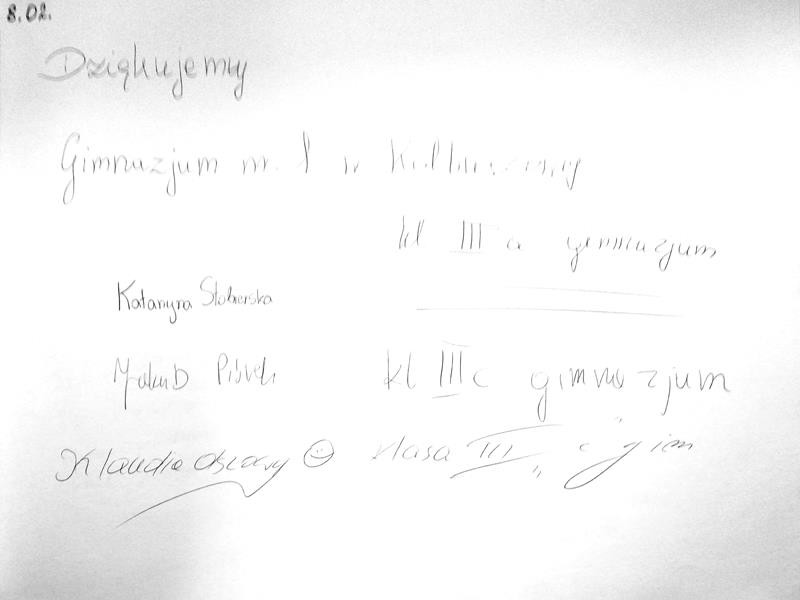 8.02.
Dziękujemy
Gimnazjum nr. 1 w
kl III a gimnazjum
Katarzyna Stobierska
Jakub
kl III c gimnazjum
Klaudia klasa III "c" gim